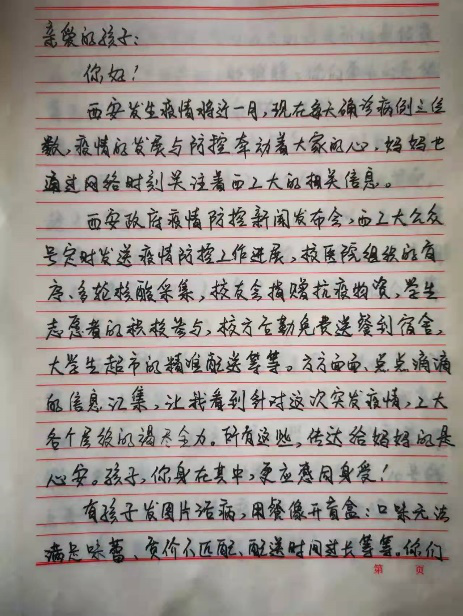 亲爱的孩子：
你好！
西安发生疫情将近一月，现在每天确诊病例三位
数，疫情的发展与防控牵动着大家的心，妈妈也
通过网络时刻关注着西工大的相关信息。
西安政府疫情防控新闻发布会，西工大公众
号定时发送疫情防控工作进展，校医院组织的有
序、多轮核酸采集，校友会捐赠抗疫物资，学生
志愿者的积极参与，校方后勤免费送餐到宿舍，
大学生超市的精准配送等等。方方面面、点点滴滴
的信息汇集，让我看到针对这次突发疫情，工大
各个层级的竭尽全力。所有这些，传达给妈妈的是
心安。孩子，你身在其中，更应感同身受！
有孩子发图片诟病，用餐像开盲盒：口味无法
满足味蕾、质价不匹配、配送时间过长等等。你们
第 页